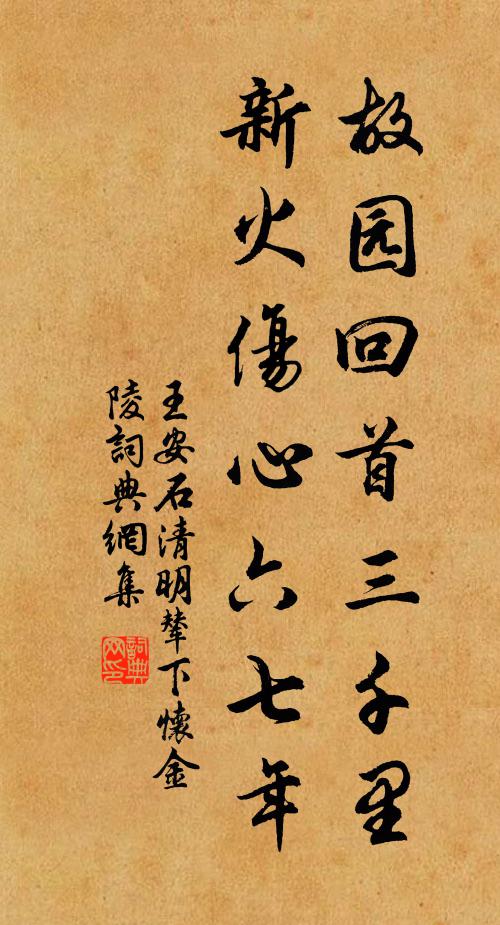 故园回首三千里
新火傷心六七年
王安石清明輦下懷金
陵詞典網集
詞典
网印